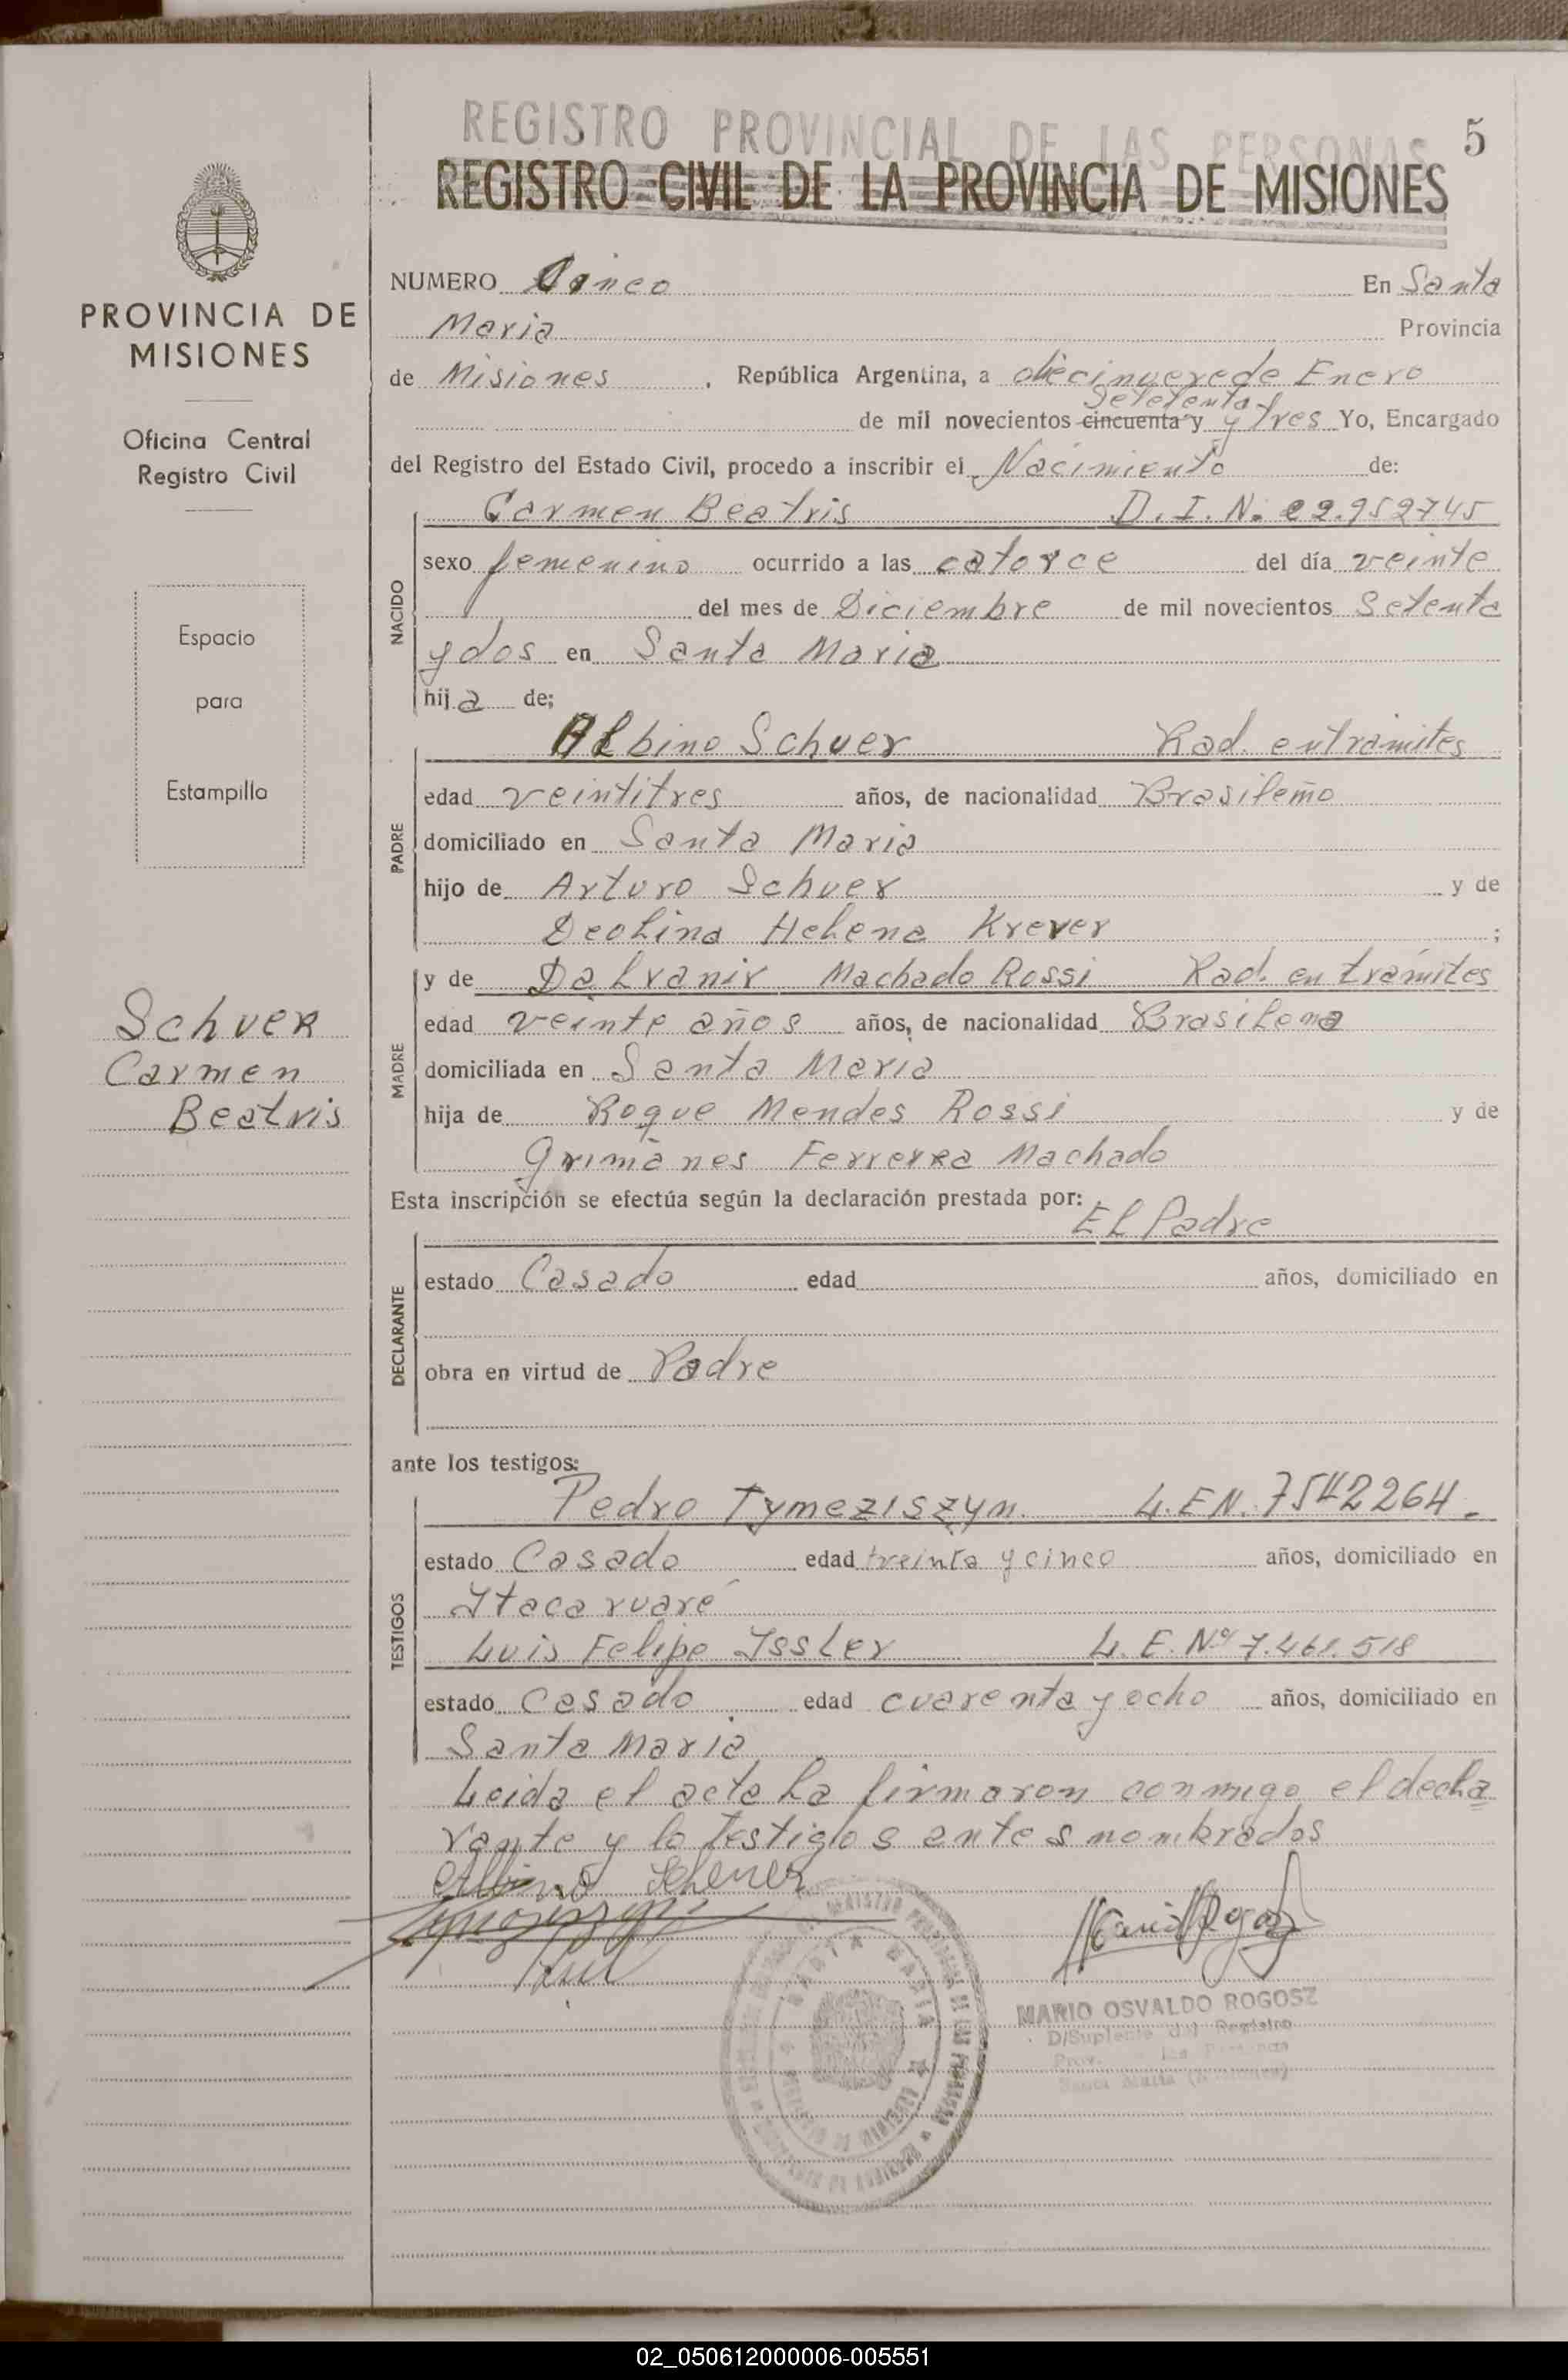 REGISTRO PROVINCIAL DE LAS PERSONAS
5
REGISTRO CIVIL DE LA PROVINCIA DE MISIONES
PROVINCIA DE
MISIONES
Oficina Central
Registro Civil
Espacio
para
Estampilla
Schuer
Carmen
Beatris
NUMERO Cinco En Santa
Maria Provincia
de Misiones, República Argentina, a diecinueve de Enero
setetenta
de mil novecientos cincuenta y y tres Yo, Encargado
del Registro del Estado Civil, procedo a inscribir el Nacimiento de:
NACIDO
Carmen Beatris D.I.N. 22.952745
sexo femenino ocurrido a las catorce del día veinte
del mes de Diciembre de mil novecientos Setenta
y dos en Santa Maria
hija de;
PADRE
Albino Schuer Rad. en tramites
edad veintitres años, de nacionalidad Brasileño
domiciliado en Santa Maria
hijo de Arturo Schuer y de
Deolina Helena Krever ;
MADRE
y de Dalvanir Machado Rossi Rad. en trámites
edad veinte años años, de nacionalidad Brasilena
domiciliada en Santa Maria
hija de Roque Mendes Rossi y de
Grimánes Ferrerra Machado
Esta inscripción se efectúa según la declaración prestada por:
DECLARANTE
El Padre
estado Casado edad años, domiciliado en
obra en virtud de Padre
ante los testigos:
TESTIGOS
Pedro Tymeziszyn. L.E.N. 7542264.
estado Casado edad treinta y cinco años, domiciliado en
Itacaruaré
Luis Felipe Issler L.E. Nº 7.461.518
estado Casado edad cuarenta y ocho años, domiciliado en
Santa Maria
Leida el acta la firmaron conmigo el decla
rante y lo testigos antes nombrados
Albino Schuer
SANTA MARIA
MARIO OSVALDO ROGOSZ
D/Suplente del Registro
Prov. Las Personas
Santa Maria (Misiones)
02_050612000006-005551